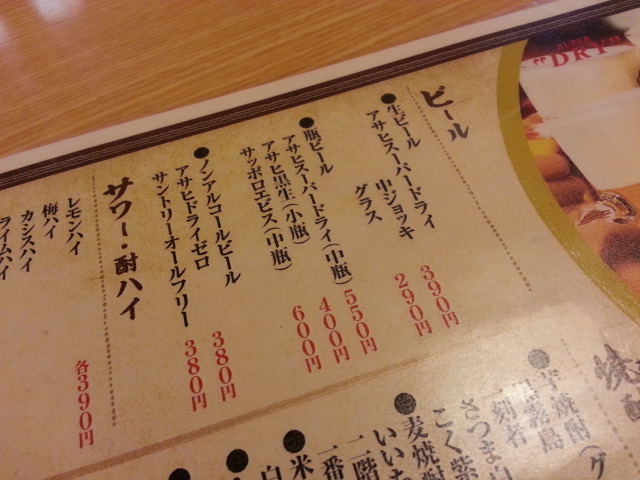 SUPER
"DRY"
ビール
●生ビール
アサヒスーパードライ
中ジョッキ 390円
グラス 290円
●瓶ビール
アサヒスーパードライ(中瓶) 550円
アサヒ黒生(小瓶) 400円
サッポロエビス(中瓶) 600円
●ノンアルコールビール
アサヒドライゼロ 380円
サントリーオールフリー 380円
サワー・酎ハイ
レモンハイ 各390円
梅ハイ
カシスハイ
ライムハイ
焼酎
●芋焼酎(グ
黒霧島
刻者
さつま白
こく紫
●麦焼酎
いいち
二階
一番
●米
白